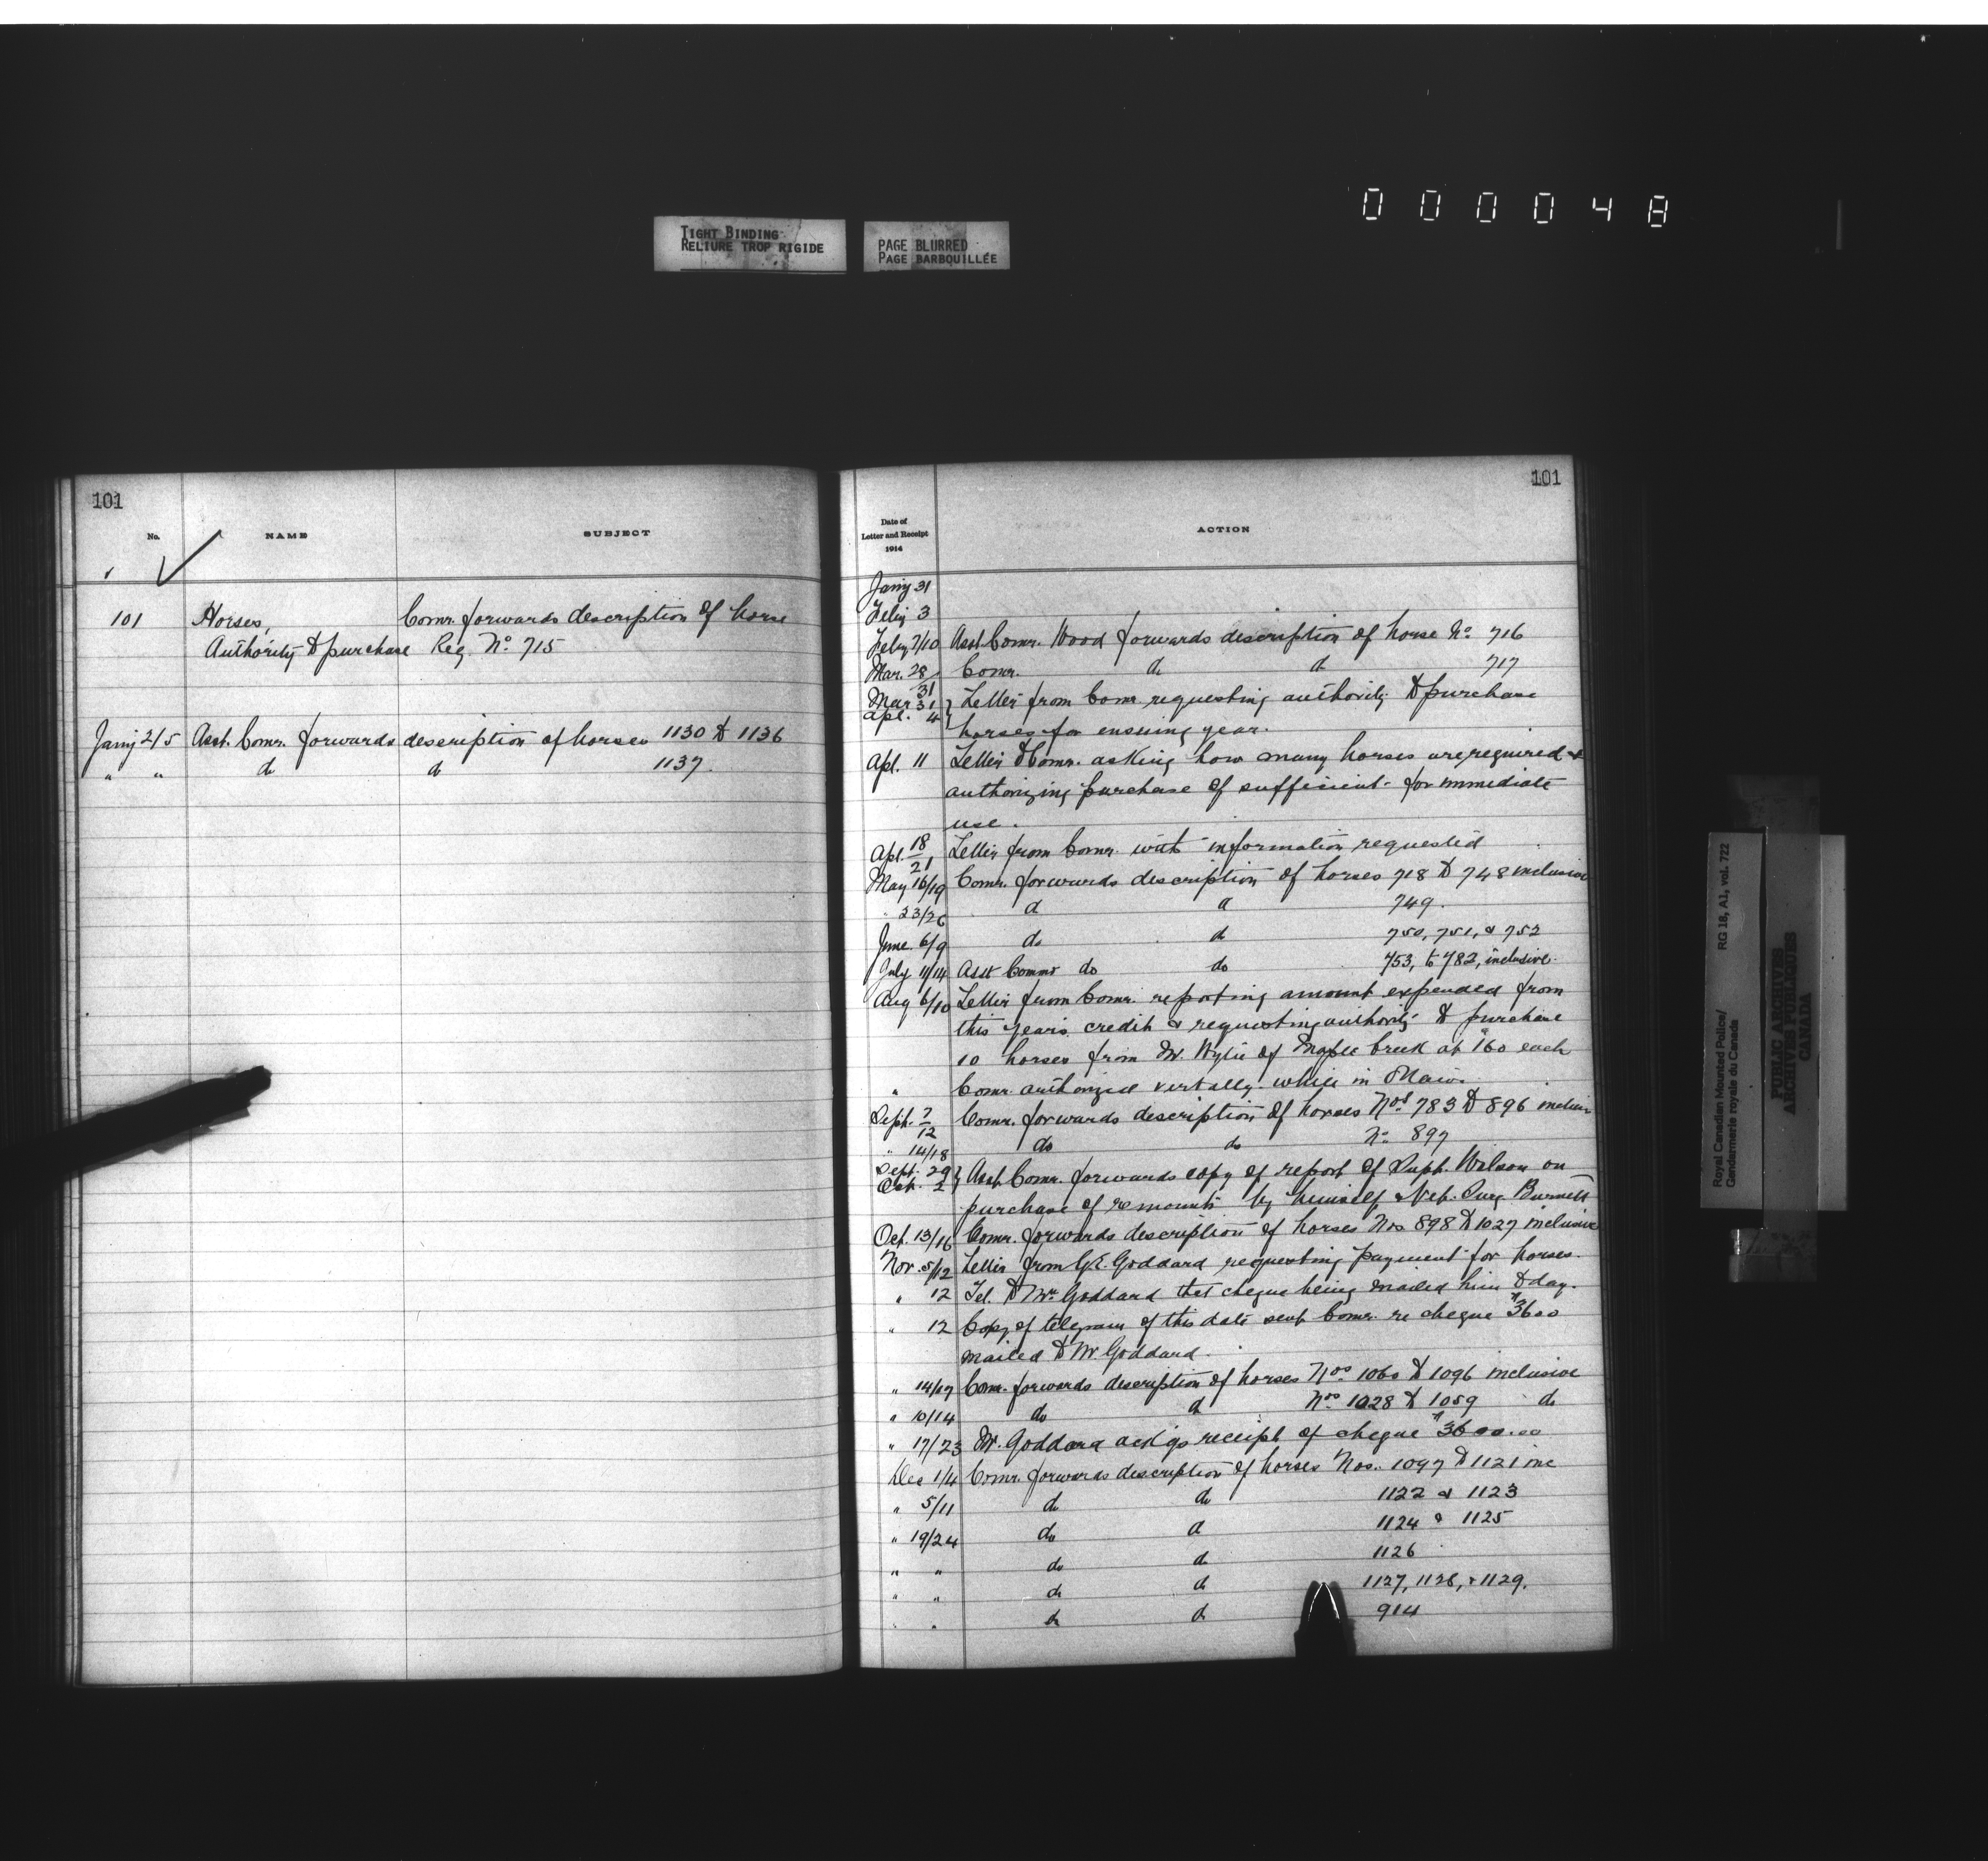 000048
TIGHT BINDING
RELIURE TROP RIGIDE
PAGE BLURRED
PAGE BARBOUILLÉE
101
No. NAME SUBJECT
101 Horses, Comr. forwards description of horse
Authority to purchase Reg. No. 715
Jany 2/5 Asst. Comr. forwards description of horses 1130 to 1136
" " do do 1137.
101
Date of Letter and Receipt 1914 ACTION
Jany 31
Feby 3
Feby 7/10 Asst. Comr. Wood forwards description of horse No. 716
Mar. 28/31 Comr. do do 717
Mar 31 Apl. 4 } Letter from Comr. requesting authority to purchase
horses for ensuing year.
Apl. 11 Letter to Comr. asking how many horses are required &
authorizing purchase of sufficient for immediate
use.
Apl. 18/21 Letter from Comr. with information requested
May 16/19 Comr. forwards description of horses 718 to 748 inclusive
" 23/26 do do 749.
June 6/9 do do 750, 751, & 752
July 11/14 Asst Commr do do 753, to 782, inclusive.
Aug 6/10 Letter from Comr. reporting amount expended from
this year's credit & requesting authority to purchase
10 horses from Mr. Wylie of Maple Creek at $160 each
" Comr. authorized verbally while in
Sept. 7/12 Comr. forwards description of horses Nos. 783 to 896 inclusive
" 14/18 do do No. 897
Sept. 29 Oct. 2 } Asst. Comr. forwards copy of report of Supt. Wilson on
purchase of remounts by himself & Vet. Surg. Burnett
Oct. 13/16 Comr. forwards description of horses Nos 898 to 1027 inclusive
Nov. 5/12 Letter from G.E. Goddard requesting payment for horses.
" 12 Tel. to Mr. Goddard that cheque being mailed him to day.
" 12 Copy of telegram of this date sent Comr. re cheque $3600
mailed to Mr Goddard.
" 14/17 Comr. forwards description of horses Nos. 1060 to 1096 inclusive
" 10/14 do do Nos. 1028 to 1059 do
" 17/23 Mr. Goddard ackgs receipt of cheque $3600.00
Dec 1/4 Comr. forwards description of horses Nos. 1097 to 1121 inc
" 5/11 do do 1122 & 1123
" 19/24 do do 1124 & 1125
" " do do 1126
" " do do 1127, 1128, & 1129.
" " do do 914
Royal Canadian Mounted Police/ RG 18, A1, vol. 722
Gendarmerie royale du Canada
PUBLIC ARCHIVES
ARCHIVES PUBLIQUES
CANADA